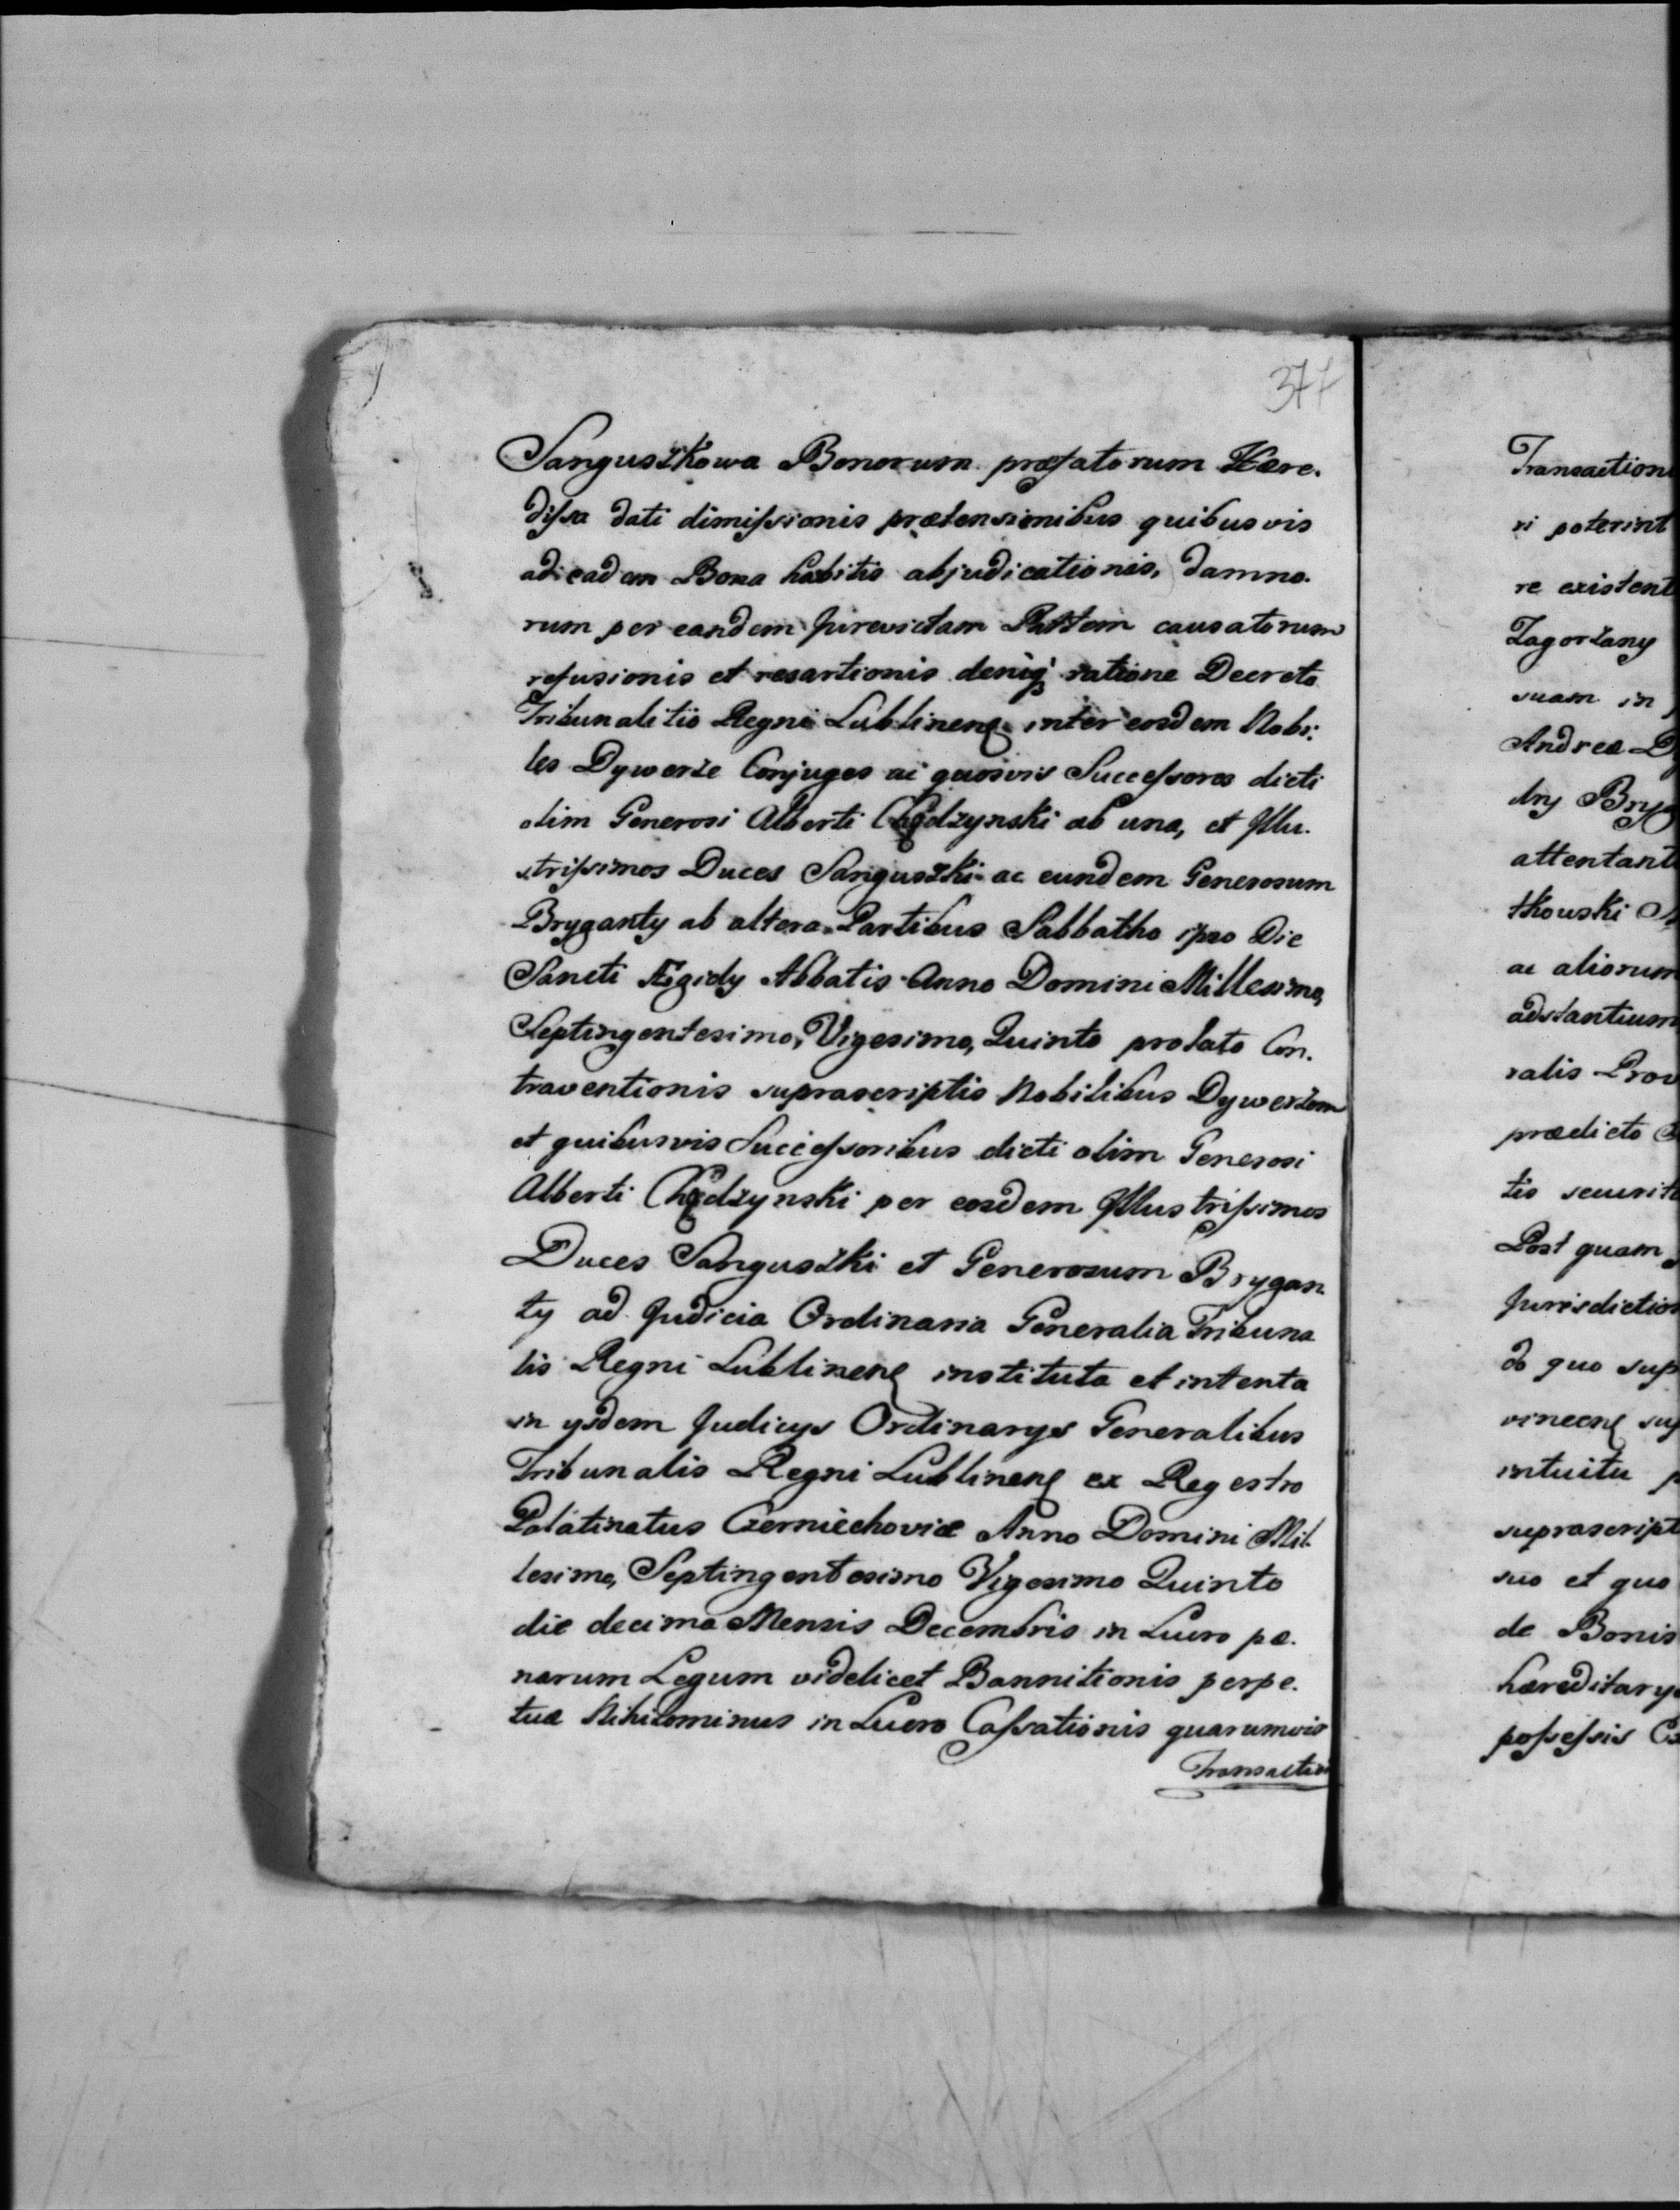 377
Sanguszkowa Bonorum præfatorum Hære.
dissa dati dimissionis prætensionibus quibusvis
ad eadem Bona habitis abjudicationis, damno.
rum per eandem Jurevictam Partem causatorum
refusionis et resartionis deniq3 ratione Decreto
Tribunalitio Regni Lublinens inter eosdem Nobi.
les Dywerze Conjuges ac quosvis Successores dicti
olim Generosi Alberti Chędzynski ab una, et Illu.
strissimos Duces Sanguszki ac eundem Generosum
Bryganty ab altera Partibus Sabbatho ipso Die
Sancti Ægidy Abbatis Anno Domini Millesimo,
Septingentesimo, Vigesimo, Quinto prolato Con.
traventionis suprascriptis Nobilibus Dywerzom
et quibusvis Successoribus dicti olim Generosi
Alberti Chędzynski per eosdem Illustrissimos
Duces Sanguszki et Generosum Brygan
ty ad Judicia Ordinaria Generalia Tribuna
lis Regni Lublinens instituta et intenta
in ysdem Judicys Ordinarys Generalibus
Tribunalis Regni Lublinens ex Regestro
Palatinatus Czerniechoviæ Anno Domini Mil
lesimo, Septingentesimo Vigesimo Quinto
die decima Mensis Decembris in Lucro pæ.
narum Legum videlicet Bannitionis perpe.
tuæ Nihilominus in Lucro Cassationis quarumvis
Transactio
Transaction
ri poterint
re existent
Zagorzany
suam in
Andreæ
Bryg
attentant
tkowski
ac aliorum
adstantium
ralis Prov
prædicto
tis securit
Post quam
Jurisdiction
do quo sup
vincens sup
intuitu p
suprascript
suo et quo
de Bonis
hæreditary
possessis